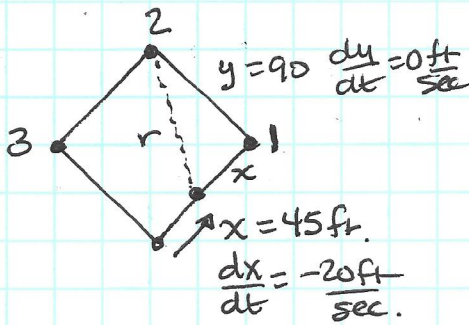 2
y = 90 dy/dt = 0 ft/sec
3
r
1
x
x = 45 ft.
dx/dt = -20 ft/sec.